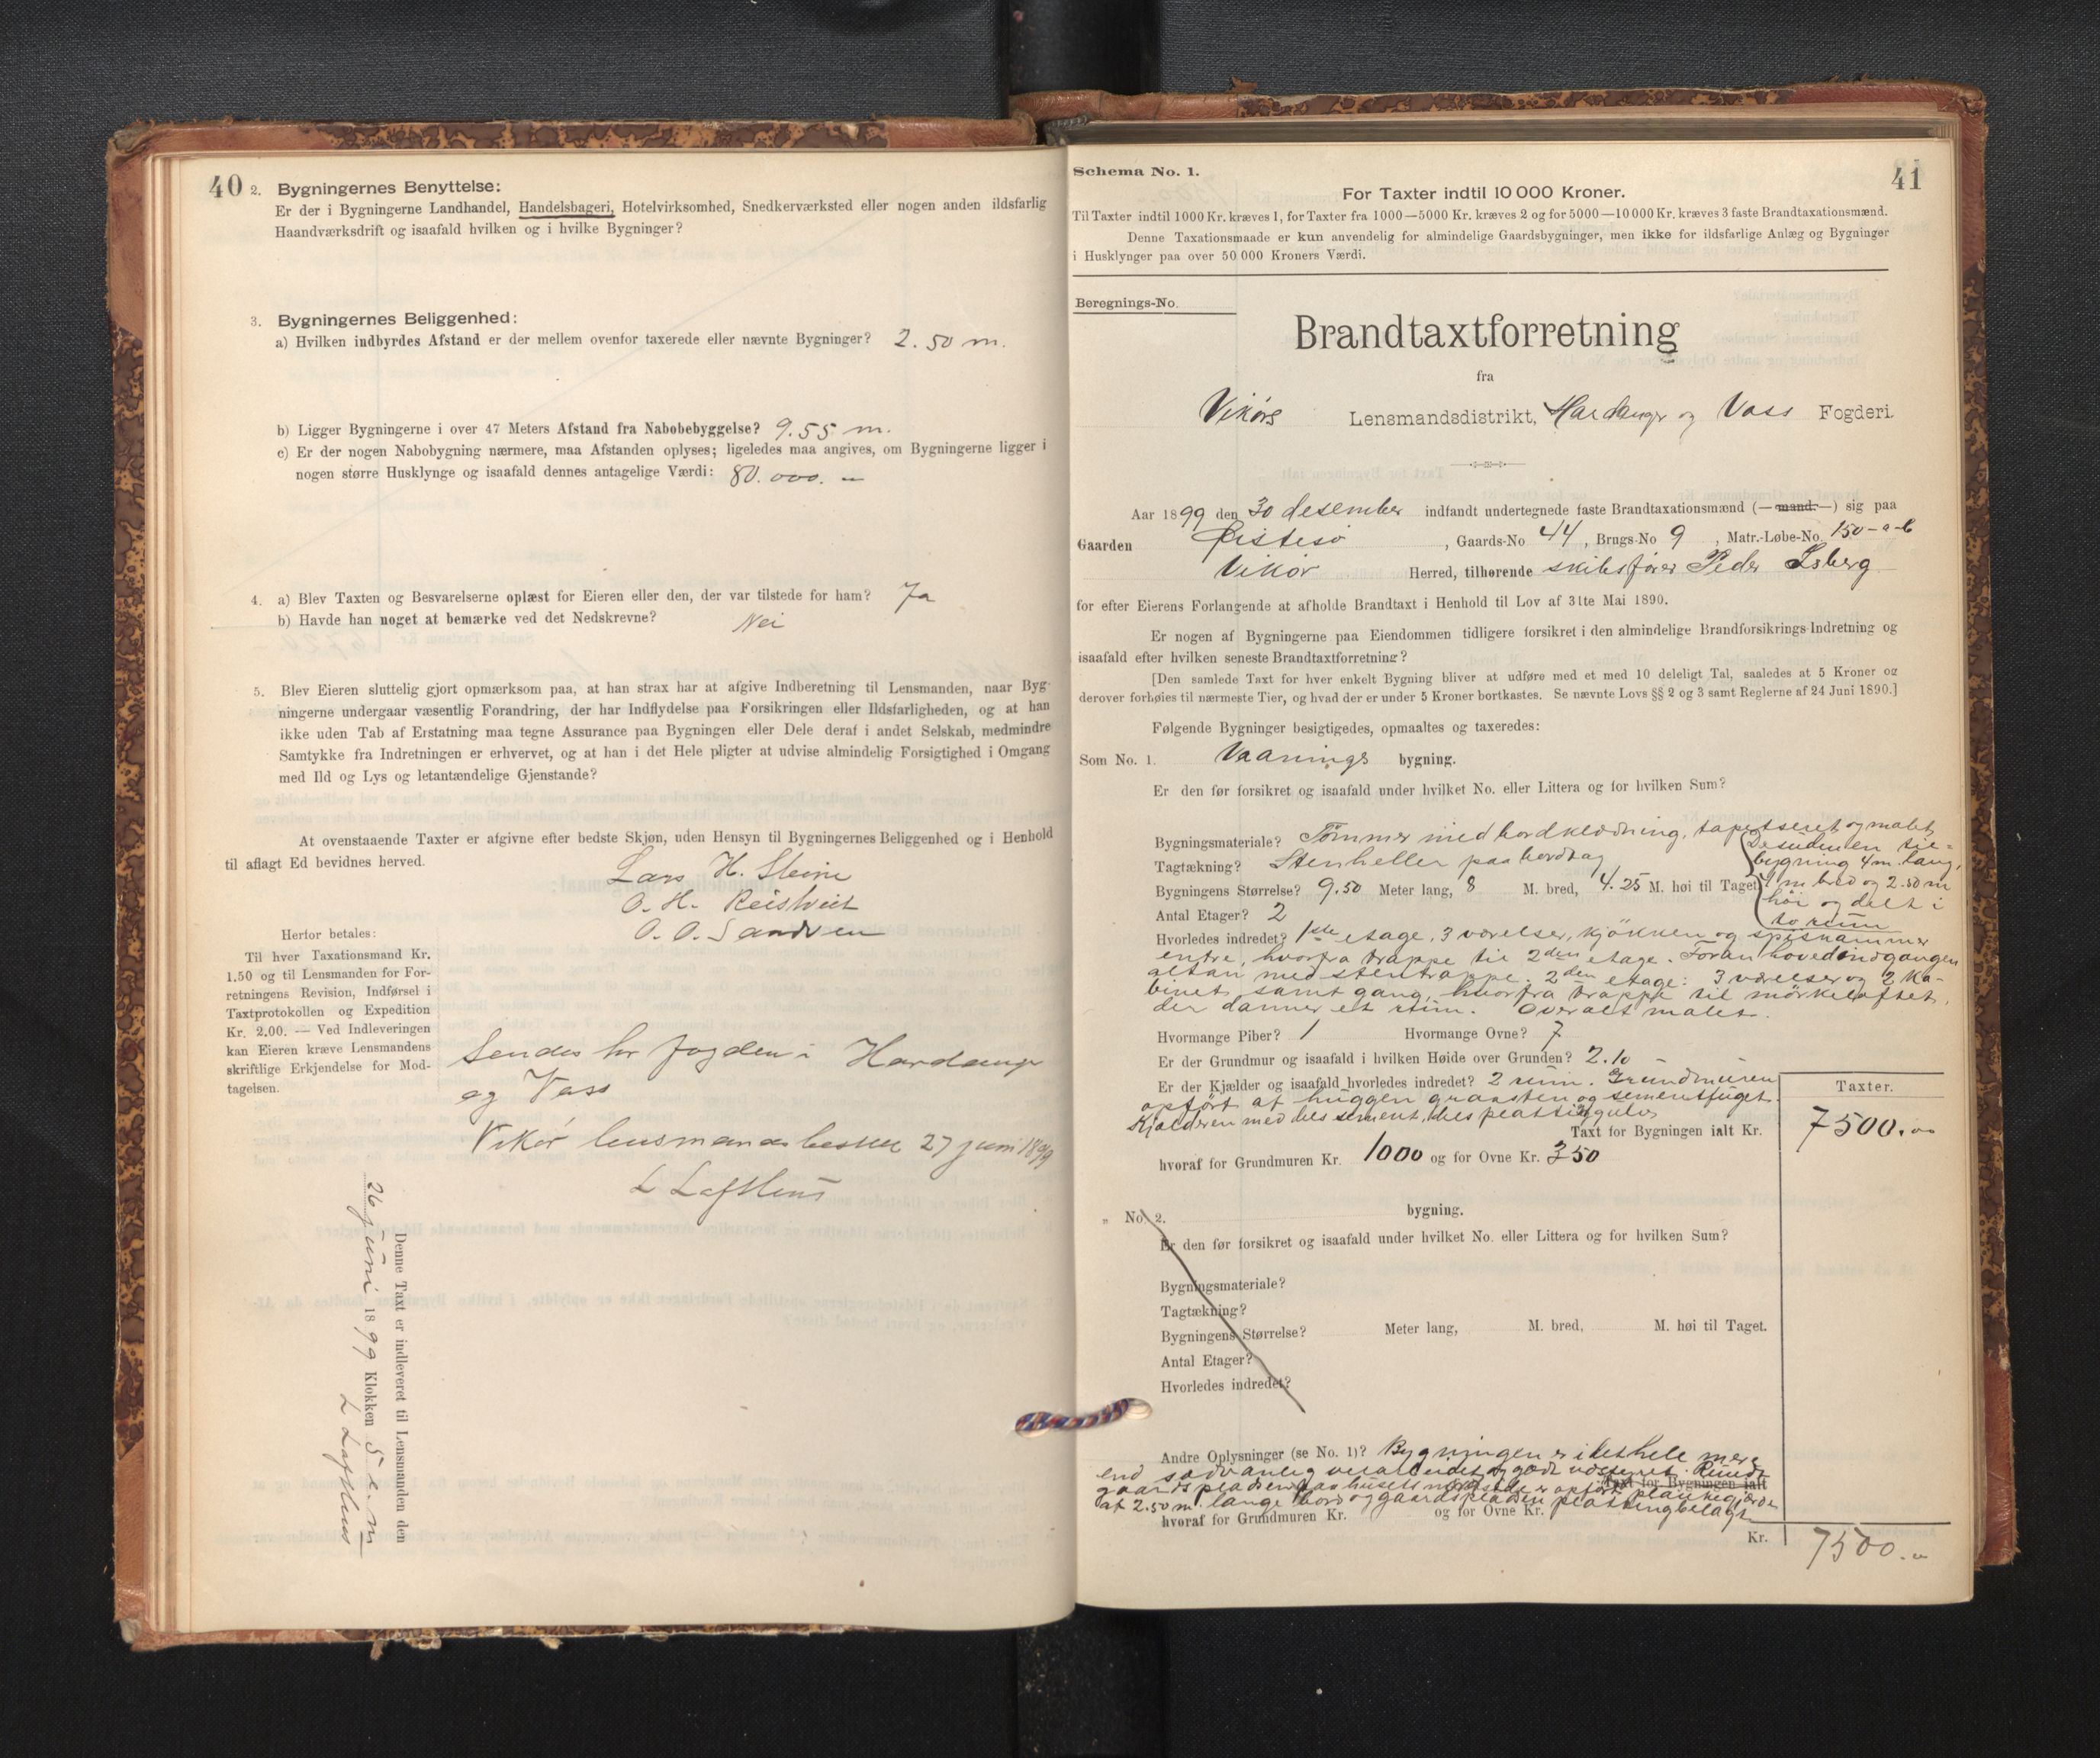 40
2. Bygningernes Benyttelse:
Er der i Bygningerne Landhandel, Handelsbageri, Hotelvirksomhed, Snedkerværksted eller nogen anden ildsfarlig
Haandværksdrift og isaafald hvilken og i hvilke Bygninger?
3. Bygningernes Beliggenhed:
a) Hvilken indbyrdes Afstand er der mellem ovenfor taxerede eller nævnte Bygninger? 2.50 m.
b) Ligger Bygningerne i over 47 Meters Afstand fra Nabobebyggelse? 9.55 m.
c) Er der nogen Nabobygning nærmere, maa Afstanden oplyses; ligeledes maa angives, om Bygningerne ligger i
nogen større Husklynge og isaafald dennes antagelige Værdi: 80.000. –
4. a) Blev Taxten og Besvarelserne oplæst for Eieren eller den, der var tilstede for ham? Ja
b) Havde han noget at bemærke ved det Nedskrevne? Nei
5. Blev Eieren sluttelig gjort opmærksom paa, at han strax har at afgive Indberetning til Lensmanden, naar Byg-
ningerne undergaar væsentlig Forandring, der har Indflydelse paa Forsikringen eller Ildsfarligheden, og at han
ikke uden Tab af Erstatning maa tegne Assurance paa Bygningen eller Dele deraf i andet Selskab, medmindre
Samtykke fra Indretningen er erhvervet, og at han i det Hele pligter at udvise almindelig Forsigtighed i Omgang
med Ild og Lys og letantændelige Gjenstande?
At ovenstaaende Taxter er afgivne efter bedste Skjøn, uden Hensyn til Bygningernes Beliggenhed og i Henhold
til aflagt Ed bevidnes herved.
Lars H. Steine
O. H. Reistveit
O. O. Sandven
Herfor betales:
Til hver Taxationsmand Kr.
1.50 og til Lensmanden for For-
retningens Revision, Indførsel i
Taxtprotokollen og Expedition
Kr. 2.00. — Ved Indleveringen
kan Eieren kræve Lensmandens
skriftlige Erkjendelse for Mod-
tagelsen.
Sendes hr fogden i Hardanger
og Voss
Vikør lensmandsbestill 27 juni 1899
L Lofthus
Denne Taxt er indleveret til Lensmanden den
26 juni 1899 Klokken 5 e.m
L Lofthus
41
Schema No. 1.
For Taxter indtil 10 000 Kroner.
Til Taxter indtil 1000 Kr. kræves 1, for Taxter fra 1000—5000 Kr. kræves 2 og for 5000—10000 Kr. kræves 3 faste Brandtaxationsmænd.
Denne Taxationsmaade er kun anvendelig for almindelige Gaardsbygninger, men ikke for ildsfarlige Anlæg og Bygninger
i Husklynger paa over 50 000 Kroners Værdi.
Beregnings-No.
Brandtaxtforretning
fra
Vikørs Lensmandsdistrikt, Hardanger og Voss Fogderi.
Aar 1899 den 30 desember indfandt undertegnede faste Brandtaxationsmænd (—mand—) sig paa
Gaarden Østesø, Gaards-No 44, Brugs-No 9, Matr.-Løbe-No. 150-a-b
Vikør Herred, tilhørende skibsfører Peder Isberg
for efter Eierens Forlangende at afholde Brandtaxt i Henhold til Lov af 31te Mai 1890.
Er nogen af Bygningerne paa Eiendommen tidligere forsikret i den almindelige Brandforsikrings-Indretning og
isaafald efter hvilken seneste Brandtaxtforretning?
[Den samlede Taxt for hver enkelt Bygning bliver at udføre med et med 10 deleligt Tal, saaledes at 5 Kroner og
derover forhøies til nærmeste Tier, og hvad der er under 5 Kroner bortkastes. Se nævnte Lovs §§ 2 og 3 samt Reglerne af 24 Juni 1890.]
Følgende Bygninger besigtigedes, opmaaltes og taxeredes:
Som No. 1. Vaanings bygning.
Er den før forsikret og isaafald under hvilket No. eller Littera og for hvilken Sum?
Bygningsmateriale? Tømmer med bordklædning, tapetseret og malet
Tagtækning? Stenheller paa bordtag
Desuden en til-
bygning 4 m. lang,
1 m bred og 2.50 m
høi og delt i
to rum
Bygningens Størrelse? 9.50 Meter lang, 8 M. bred, 4.25 M. høi til Taget.
Antal Etager? 2
Hvorledes indredet? 1ste etage, 3 værelser, kjøkken og spiskammer
entre, hvorfra trappe til 2den etage. Foran hovedindgangen
altan med stentrappe. 2den etage: 3 værelser og 2 ka-
binet samt gang, hvorfra trappe til mørkeloftet,
der danner et rum. Overalt malet.
Hvormange Piber? 1 Hvormange Ovne? 7
Er der Grundmur og isaafald i hvilken Høide over Grunden? 2.10
Er der Kjælder og isaafald hvorledes indredet? 2 rum. Grundmuren
opført af huggen graasten og sementfuget.
Kjælderen med dels sement, dels plattinggulv
Taxter.
Taxt for Bygningen ialt Kr. 7500.00
hvoraf for Grundmuren Kr. 1000 og for Ovne Kr. 350
„ No. 2. bygning.
Er den før forsikret og isaafald under hvilket No. eller Littera og for hvilken Sum?
Bygningsmateriale?
Tagtækning?
Bygningens Størrelse? Meter lang, M. bred, M. høi til Taget.
Antal Etager?
Hvorledes indredet?
Andre Oplysninger (se No. 1)? Bygningen er i det hele mere
end sædvanlig vel arbeidet og godt udstyret. Rundt
gaardspladsen paa husets nordside er opført plankegjærde
Taxt for Bygningen ialt
af 2.50 m. lange bord og gaardspladsen plattingbelagt
hvoraf for Grundmuren Kr. og for Ovne Kr.
Kr. 7500.–